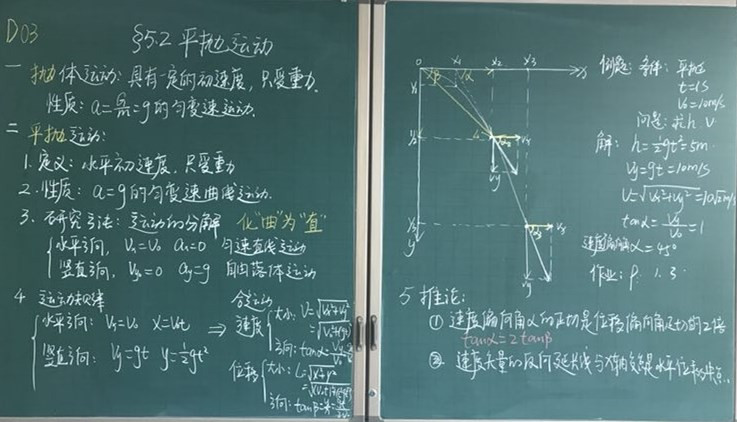 D03
§5.2 平抛运动
一 抛体运动: 具有一定的初速度, 只受重力.
性质: a=G/m=g的匀变速运动.
二 平抛运动:
1. 定义: 水平初速度, 只受重力
2. 性质: a=g的匀变速曲线运动.
3. 研究方法: 运动的分解 化"曲"为"直"
水平方向, Vx=V0 ax=0 匀速直线运动
竖直方向, Vy=0 ay=g 自由落体运动
4 运动规律
水平方向: Vx=V0 X=V0t ⇒
竖直方向: Vy=gt y=½gt²
合运动
速度
大小: V=√(Vx²+Vy²)
方向: tanα=
位移
大小: L=√(x²+y²)
方向: tanβ=
0 X1 X2 X3 x
y1
y2
y3
y
β α
Vy
Vy
例题: 条件: 平抛
t=1s
V0=10m/s
问题: 求h V
解: h=½gt²=5m
Vy=gt=10m/s
V=√(Vx²+Vy²)=10√2m/s
tanα=Vy/V0=1
速度偏角α=45°
作业: P. 1. 3
5 推论:
① 速度偏向角α的正切是位移偏向角正切的2倍
tanα=2tanβ
② 速度矢量的反向延长线与x轴的交点是水平位移的中点.